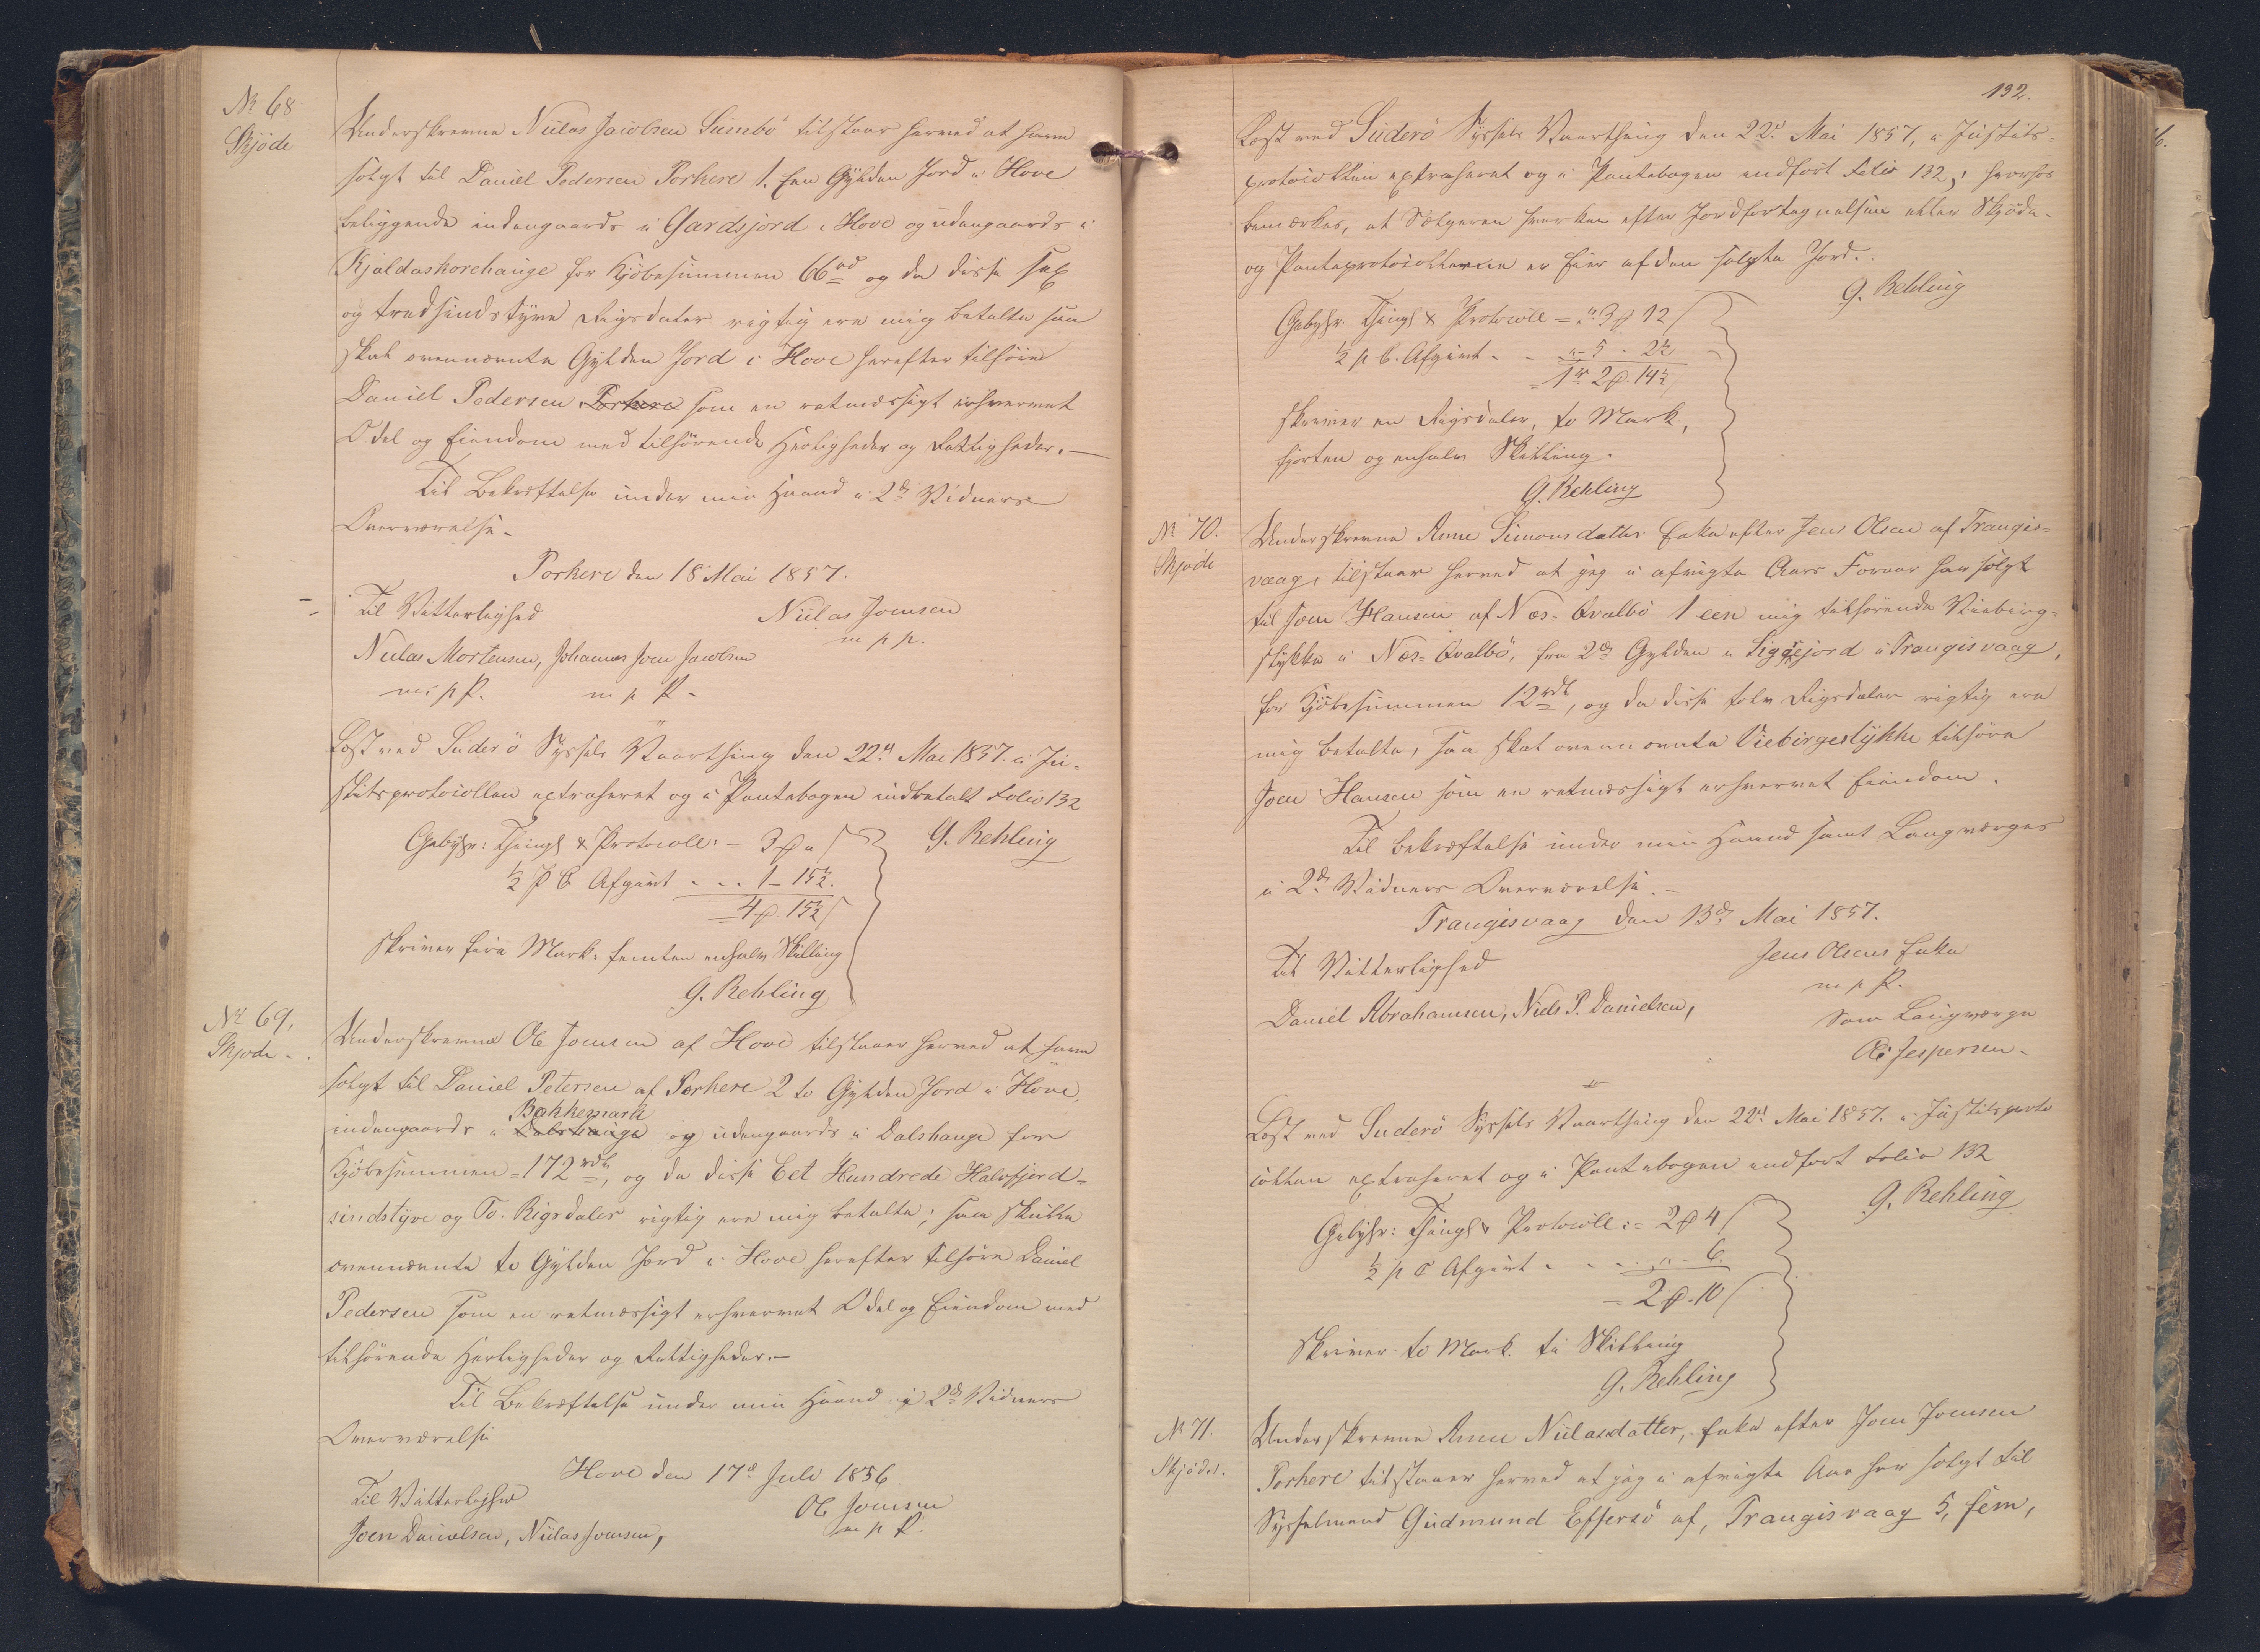 No 68
Skjøde
Underskrevne Niclas Jacobsen Sumbø tilstaar herved at have
solgt til Daniel Pedersen Porkere 1. Een Gylden Jord i Hove
beliggende indengaards i Gardsjord i Hove og udengaards i
Kjaldaskorehauge for Kjøbesummen 66 rd og da disse sex
og tredsindstyve Rigsdaler rigtig ere mig betalte saa
skal ovennævnte Gylden Jord i Hove herefter tilhøre
Daniel Pedersen Porkere som en retmæssigt erhvervet
Odel og Eiendom med tilhørende Herligheder og Rettigheder.—
Til Bekræftelse under min Haand i 2de Vidners
Overværelse.
Porkere den 18 Mai 1857.
Til Vitterlighed
Niclas Joensen
m p p.
Niclas Mortensen, Johannes Joen Jacobsen
m. p P. m p P.
Læst ved Suderø Syssels Vaarthing den 22d Mai 1857. i Ju-
stitsprotocollen extraheret og i Pantebogen indbetalt Folio 132
G. Rehling
Gebyhr: Thingl & Protocoll: = 3 ℔ "
½ p C Afgivt - - - 1 - 15½.
= 4 ℔. 15½
skriver fire Mark. femten enhalv Skilling
G. Rehling
No 69.
Skjøde.
Underskrevne Ole Joensen af Hove tilstaaer herved at have
solgt til Daniel Petersen af Porkere 2 to Gylden Jord i Hove,
Bakkemark
indengaards i Dalshauge og udengaards i Dalshauge for
Kjøbesummen = 172 rdl, og da disse Eet Hundrede Halvfjerd-
sindstyve og To. Rigsdaler rigtig ere mig betalte; saa skulle
ovennævnte to Gylden Jord i Hove herefter tilhøre Daniel
Pedersen som en retmæssigt erhvervet Odel og Eiendom med
tilhørende Herligheder og Rettigheder.—
Til Bekræftelse under min Haand i 2de Vidners
Overværelse
Hove den 17d Juli 1856
Til Vitterlighed
Ole Joensen
m p P.
Joen Danielsen, Niclas Joensen,
132.
Læst ved Suderø Syssels Vaarthing den 22d Mai 1857, i Justits-
protocollen extraheret og i Pantebogen indført Folio 132; hvorhos
bemærkes, at Sælgeren hverken efter Jordfortegnelsen eller Skjøde-
og Panteprotocollerne er Eier af den solgte Jord.
G. Rehling
Gebyhr. Thingl & Protocoll = " 3 ℔ 12
½ p C. Afgivt - - " 5 - 2½
= 1 rd 2 ℔. 14½
skriver en Rigsdaler, to Mark,
fjorten og enhalv Skilling.
G. Rehling
No 70.
Skjøde
Underskrevne Anne Simonsdatter Enke efter Jens Olsen af Trangis-
vaag, tilstaar herved at jeg i afvigte Aars Foraar har solgt
til Joen Hansen af Næs-Qvalbø 1 een mig tilhørende Viebirge-
stykke i Næs-Qvalbø, fra 2de Gylden i Siggejord i Trangisvaag,
for Kjøbesummen 12 rdl, og da disse tolv Rigsdaler rigtig ere
mig betalte, saa skal ovennævnte Viebirgestykke tilhøre
Joen Hansen som en retmæssigt erhvervet Eiendom.
Til Bekræftelse under min Haand samt Laugværges
i 2de Vidners Overværelse.
Trangisvaag den 13de Mai 1857.
Til Vitterlighed
Jens Olsens Enke
m p P.
Daniel Abrahamsen, Niels P. Danielsen,
Som Laugværge
Ole Jespersen.
Læst ved Suderø Syssels Vaarthing den 22d Mai 1857. i Justitsproto
collen extraheret og i Pantebogen indført Folio 132
G. Rehling
Gebyhr: Thingl & Protocoll: = 2 ℔ 4
½ p C Afgivt - - - " - 6.
= 2 ℔. 10
skriver to Mark. ti Skilling
G. Rehling
No 71.
Skjøde.
Underskrevne Anne Niclasdatter, Enke efter Joen Joensen
Porkere tilstaaer herved at jeg i afvigte Aar har solgt til
Sysselmand Gudmund Effersø af, Trangisvaag 5, fem,